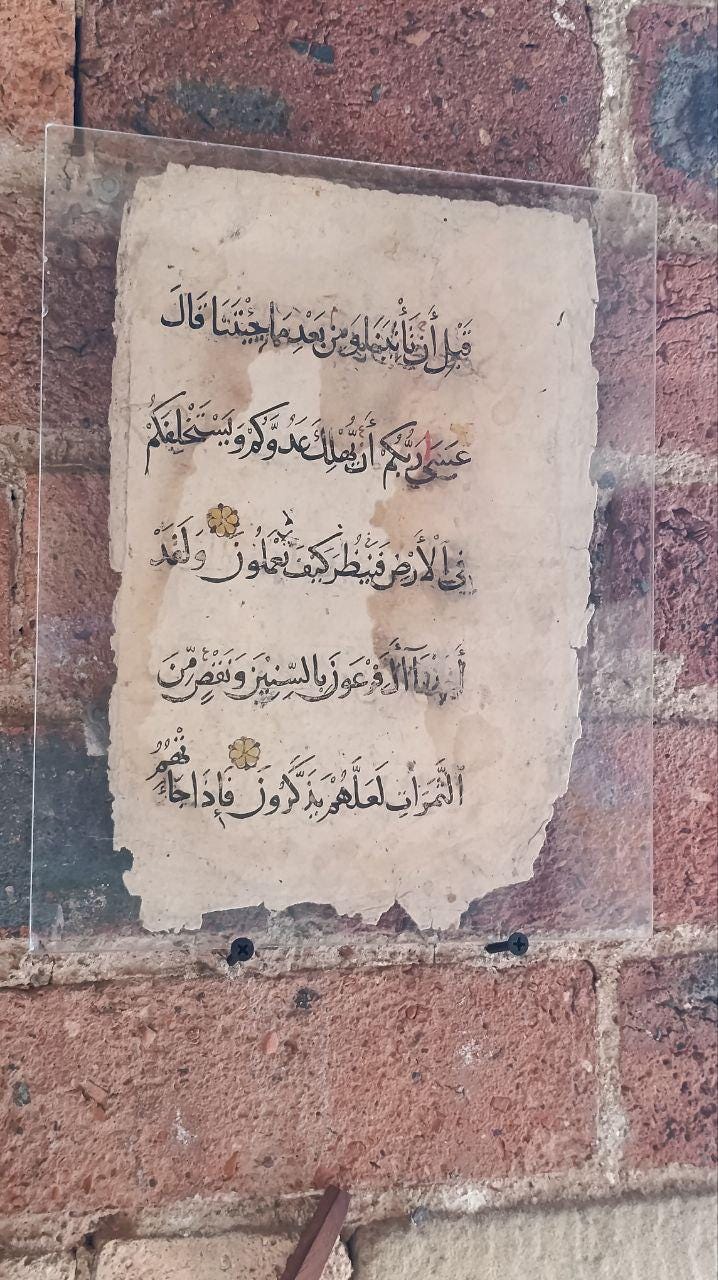 قَبْلِ أَنْ تَأْتِيَنَا وَمِنْ بَعْدِ مَا جِئْتَنَا قَالَ
عَسَى رَبُّكُمْ أَنْ يُهْلِكَ عَدُوَّكُمْ وَيَسْتَخْلِفَكُمْ
فِي الْأَرْضِ فَيَنْظُرَ كَيْفَ تَعْمَلُونَ وَلَقَدْ
أَخَذْنَا آلَ فِرْعَوْنَ بِالسِّنِينَ وَنَقْصٍ مِّنَ
الثَّمَرَاتِ لَعَلَّهُمْ يَذَّكَّرُونَ فَإِذَا جَاءَتْهُمُ